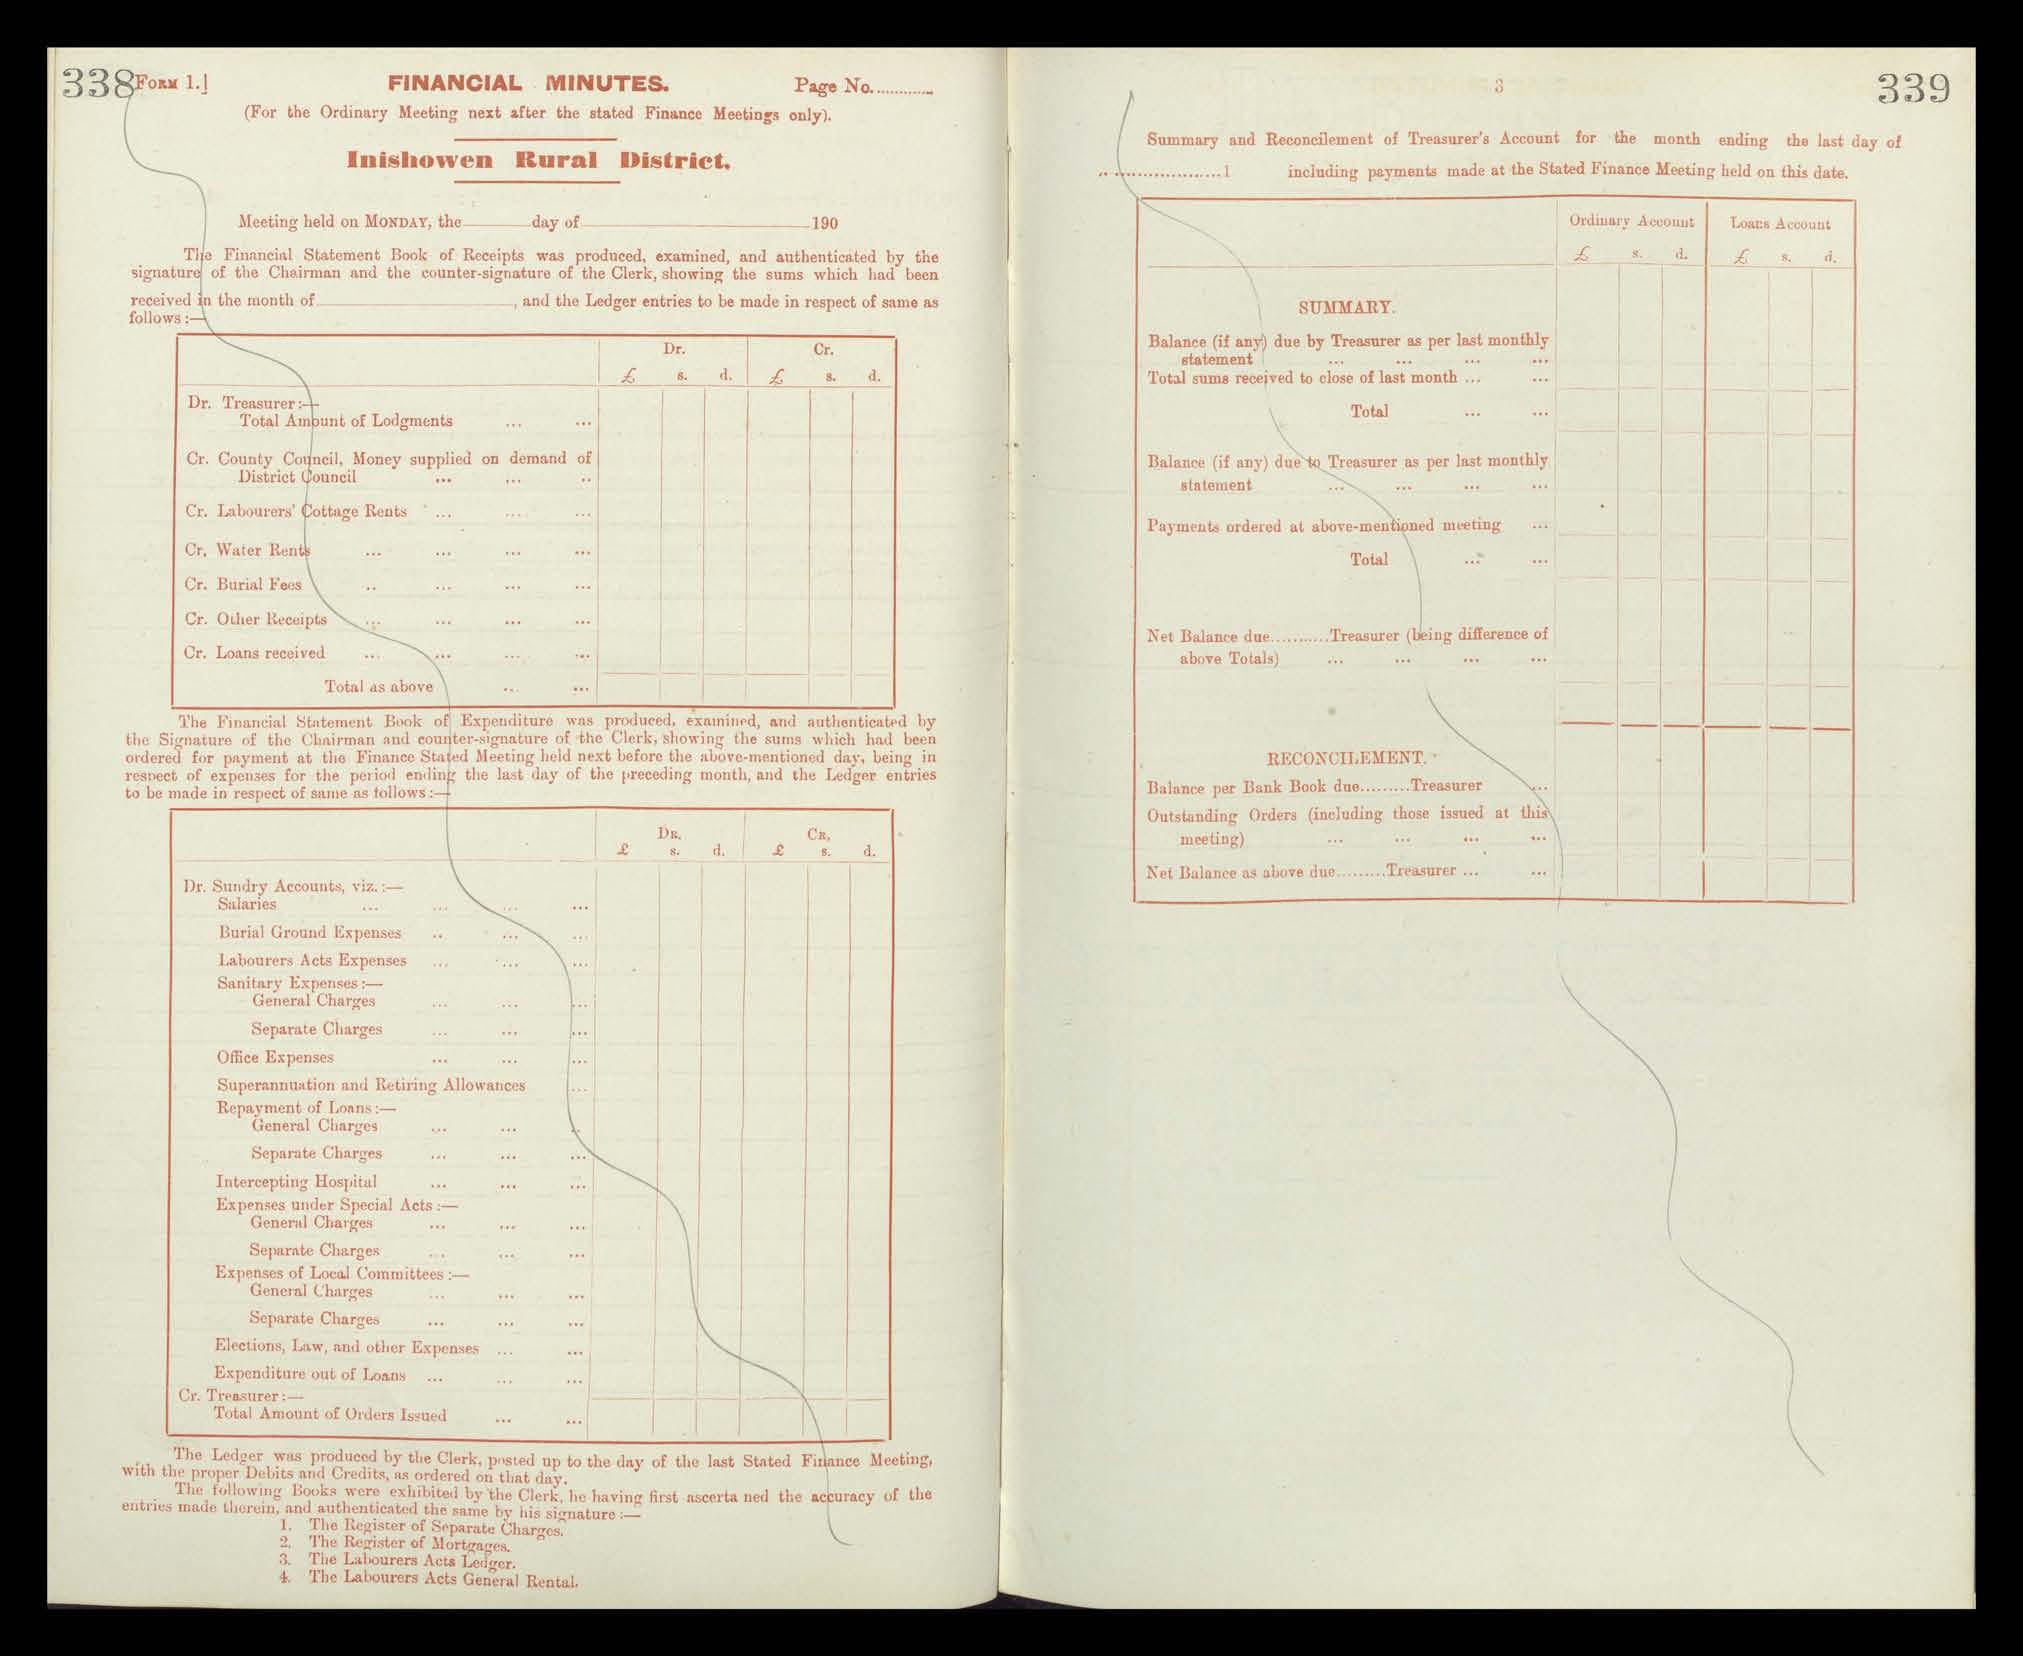 338 FORM 1.] FINANCIAL MINUTES. Page No............
(For the Ordinary Meeting next after the stated Finance Meetings only).
Inishowen Rural District.
Meeting held on MONDAY, the day of 190
The Financial Statement Book of Receipts was produced, examined, and authenticated by the
signature of the Chairman and the counter-signature of the Clerk, showing the sums which had been
received in the month of , and the Ledger entries to be made in respect of same as
follows :—
Dr. Cr.
£ s. d. £ s. d.
Dr. Treasurer :—
Total Amount of Lodgments ... ...
Cr. County Council, Money supplied on demand of
District Council ... ... ..
Cr. Labourers' Cottage Rents ... ... ...
Cr. Water Rents ... ... ... ...
Cr. Burial Fees .. ... ... ...
Cr. Other Receipts ... ... ... ...
Cr. Loans received ... ... ... ...
Total as above ... ...
The Financial Statement Book of Expenditure was produced, examined, and authenticated by
the Signature of the Chairman and counter-signature of the Clerk, showing the sums which had been
ordered for payment at the Finance Stated Meeting held next before the above-mentioned day, being in
respect of expenses for the period ending the last day of the preceding month, and the Ledger entries
to be made in respect of same as follows :—
DR. CR,
£ s. d. £ s. d.
Dr. Sundry Accounts, viz. :—
Salaries ... ... ... ...
Burial Ground Expenses .. ... ...
Labourers Acts Expenses ... ... ...
Sanitary Expenses :—
General Charges ... ... ...
Separate Charges ... ... ...
Office Expenses ... ... ...
Superannuation and Retiring Allowances ...
Repayment of Loans :—
General Charges ... ... ..
Separate Charges ... ... ...
Intercepting Hospital ... ... ...
Expenses under Special Acts :—
General Charges ... ... ...
Separate Charges ... ... ...
Expenses of Local Committees :—
General Charges ... ... ...
Separate Charges ... ... ...
Elections, Law, and other Expenses ... ...
Expenditure out of Loans ... ... ...
Cr. Treasurer :—
Total Amount of Orders Issued ... ...
The Ledger was produced by the Clerk, posted up to the day of the last Stated Finance Meeting,
with the proper Debits and Credits, as ordered on that day.
The following Books were exhibited by the Clerk, he having first ascerta ned the accuracy of the
entries made therein, and authenticated the same by his signature :—
1. The Register of Separate Charges.
2. The Register of Mortgages.
3. The Labourers Acts Ledger.
4. The Labourers Acts General Rental.
3 339
Summary and Reconcilement of Treasurer's Account for the month ending the last day of
.......................1 including payments made at the Stated Finance Meeting held on this date.
Ordinary Account Loans Account
£ s. d. £ s. d.
SUMMARY.
Balance (if any) due by Treasurer as per last monthly
statement ... ... ... ...
Total sums received to close of last month ... ...
Total ... ...
Balance (if any) due to Treasurer as per last monthly
statement ... ... ... ...
Payments ordered at above-mentioned meeting ...
Total ... ...
Net Balance due...........Treasurer (being difference of
above Totals) ... ... ... ...
RECONCILEMENT.
Balance per Bank Book due.........Treasurer ...
Outstanding Orders (including those issued at this
meeting) ... ... ... ...
Net Balance as above due.........Treasurer ... ...